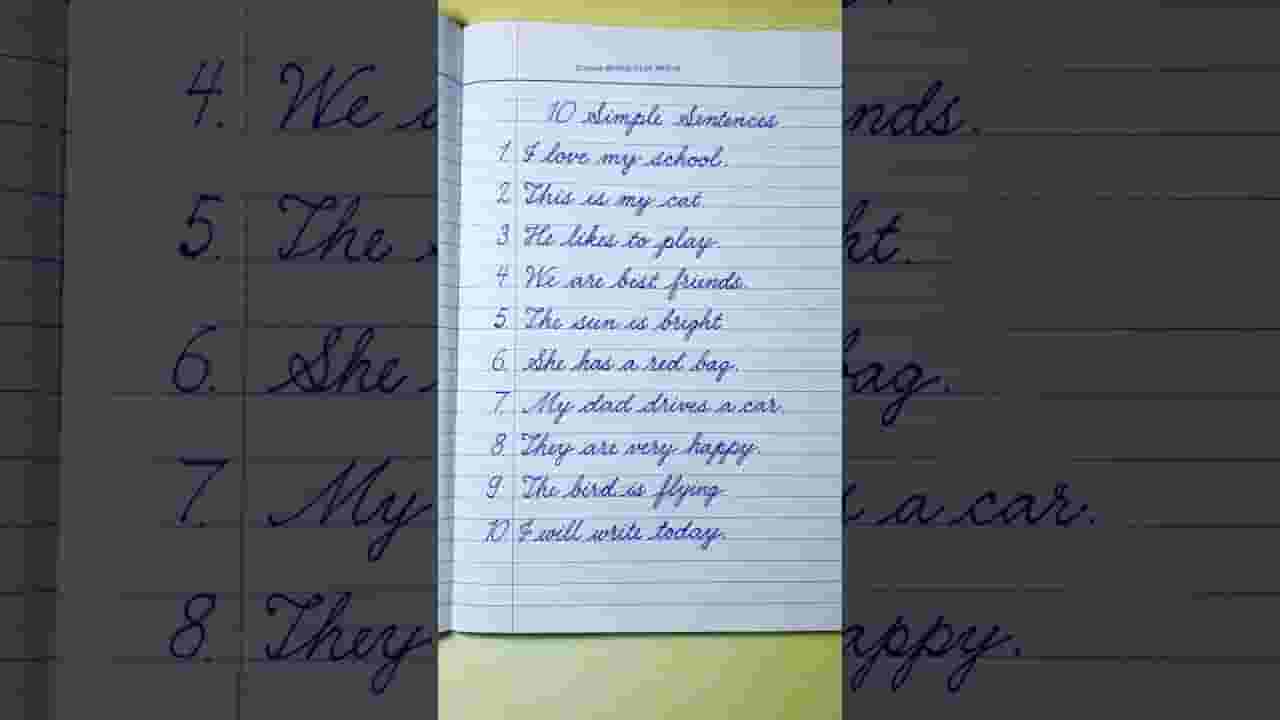 10 Simple Sentences
1. I love my school.
2 This is my cat
3. He likes to play.
4. We are best friends.
5. The sun is bright
6. She has a red bag.
7. My dad drives a car.
8. They are very happy.
9. The bird is flying
10. I will write today.